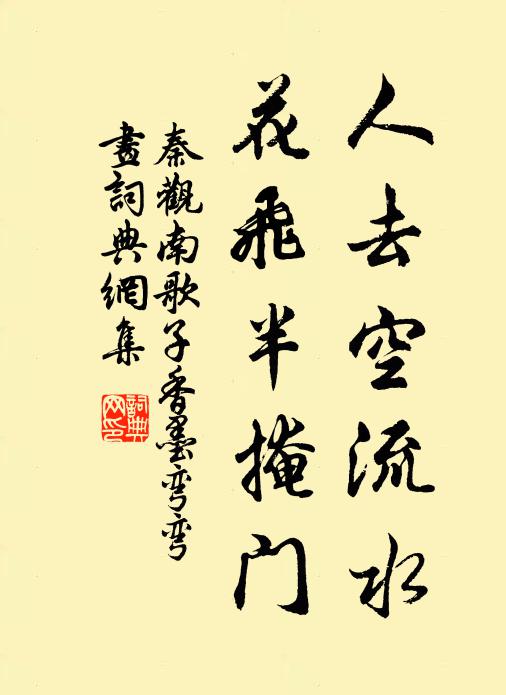 人去空流水
花飛半掩門
秦觀南歌子香墨弯弯
畫詞典網集
詞典
网印